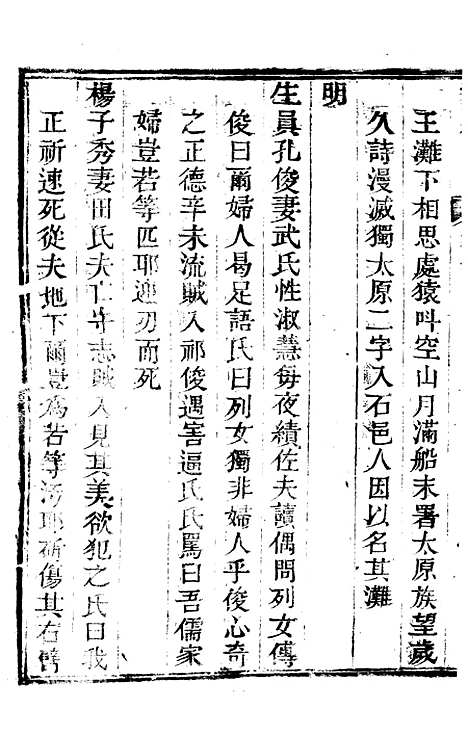 王灘下相思處猿呌空山月滿船末署太原族望歲
久詩漫滅獨太原二字入石邑人因以名其灘
明
生員孔俊妻武氏性淑慧每夜績佐夫讀偶問列女傳
俊曰爾婦人曷足語氏曰列女獨非婦人乎俊心奇
之正德辛未流賊入祁俊遇害逼氏氏罵曰吾儒家
婦豈若等匹耶迎刃而死
楊子秀妻田氏夫亡守志賊入見其美欲犯之氏曰我
正祈速死從夫地下爾豈為若等汚耶斫傷其右臂